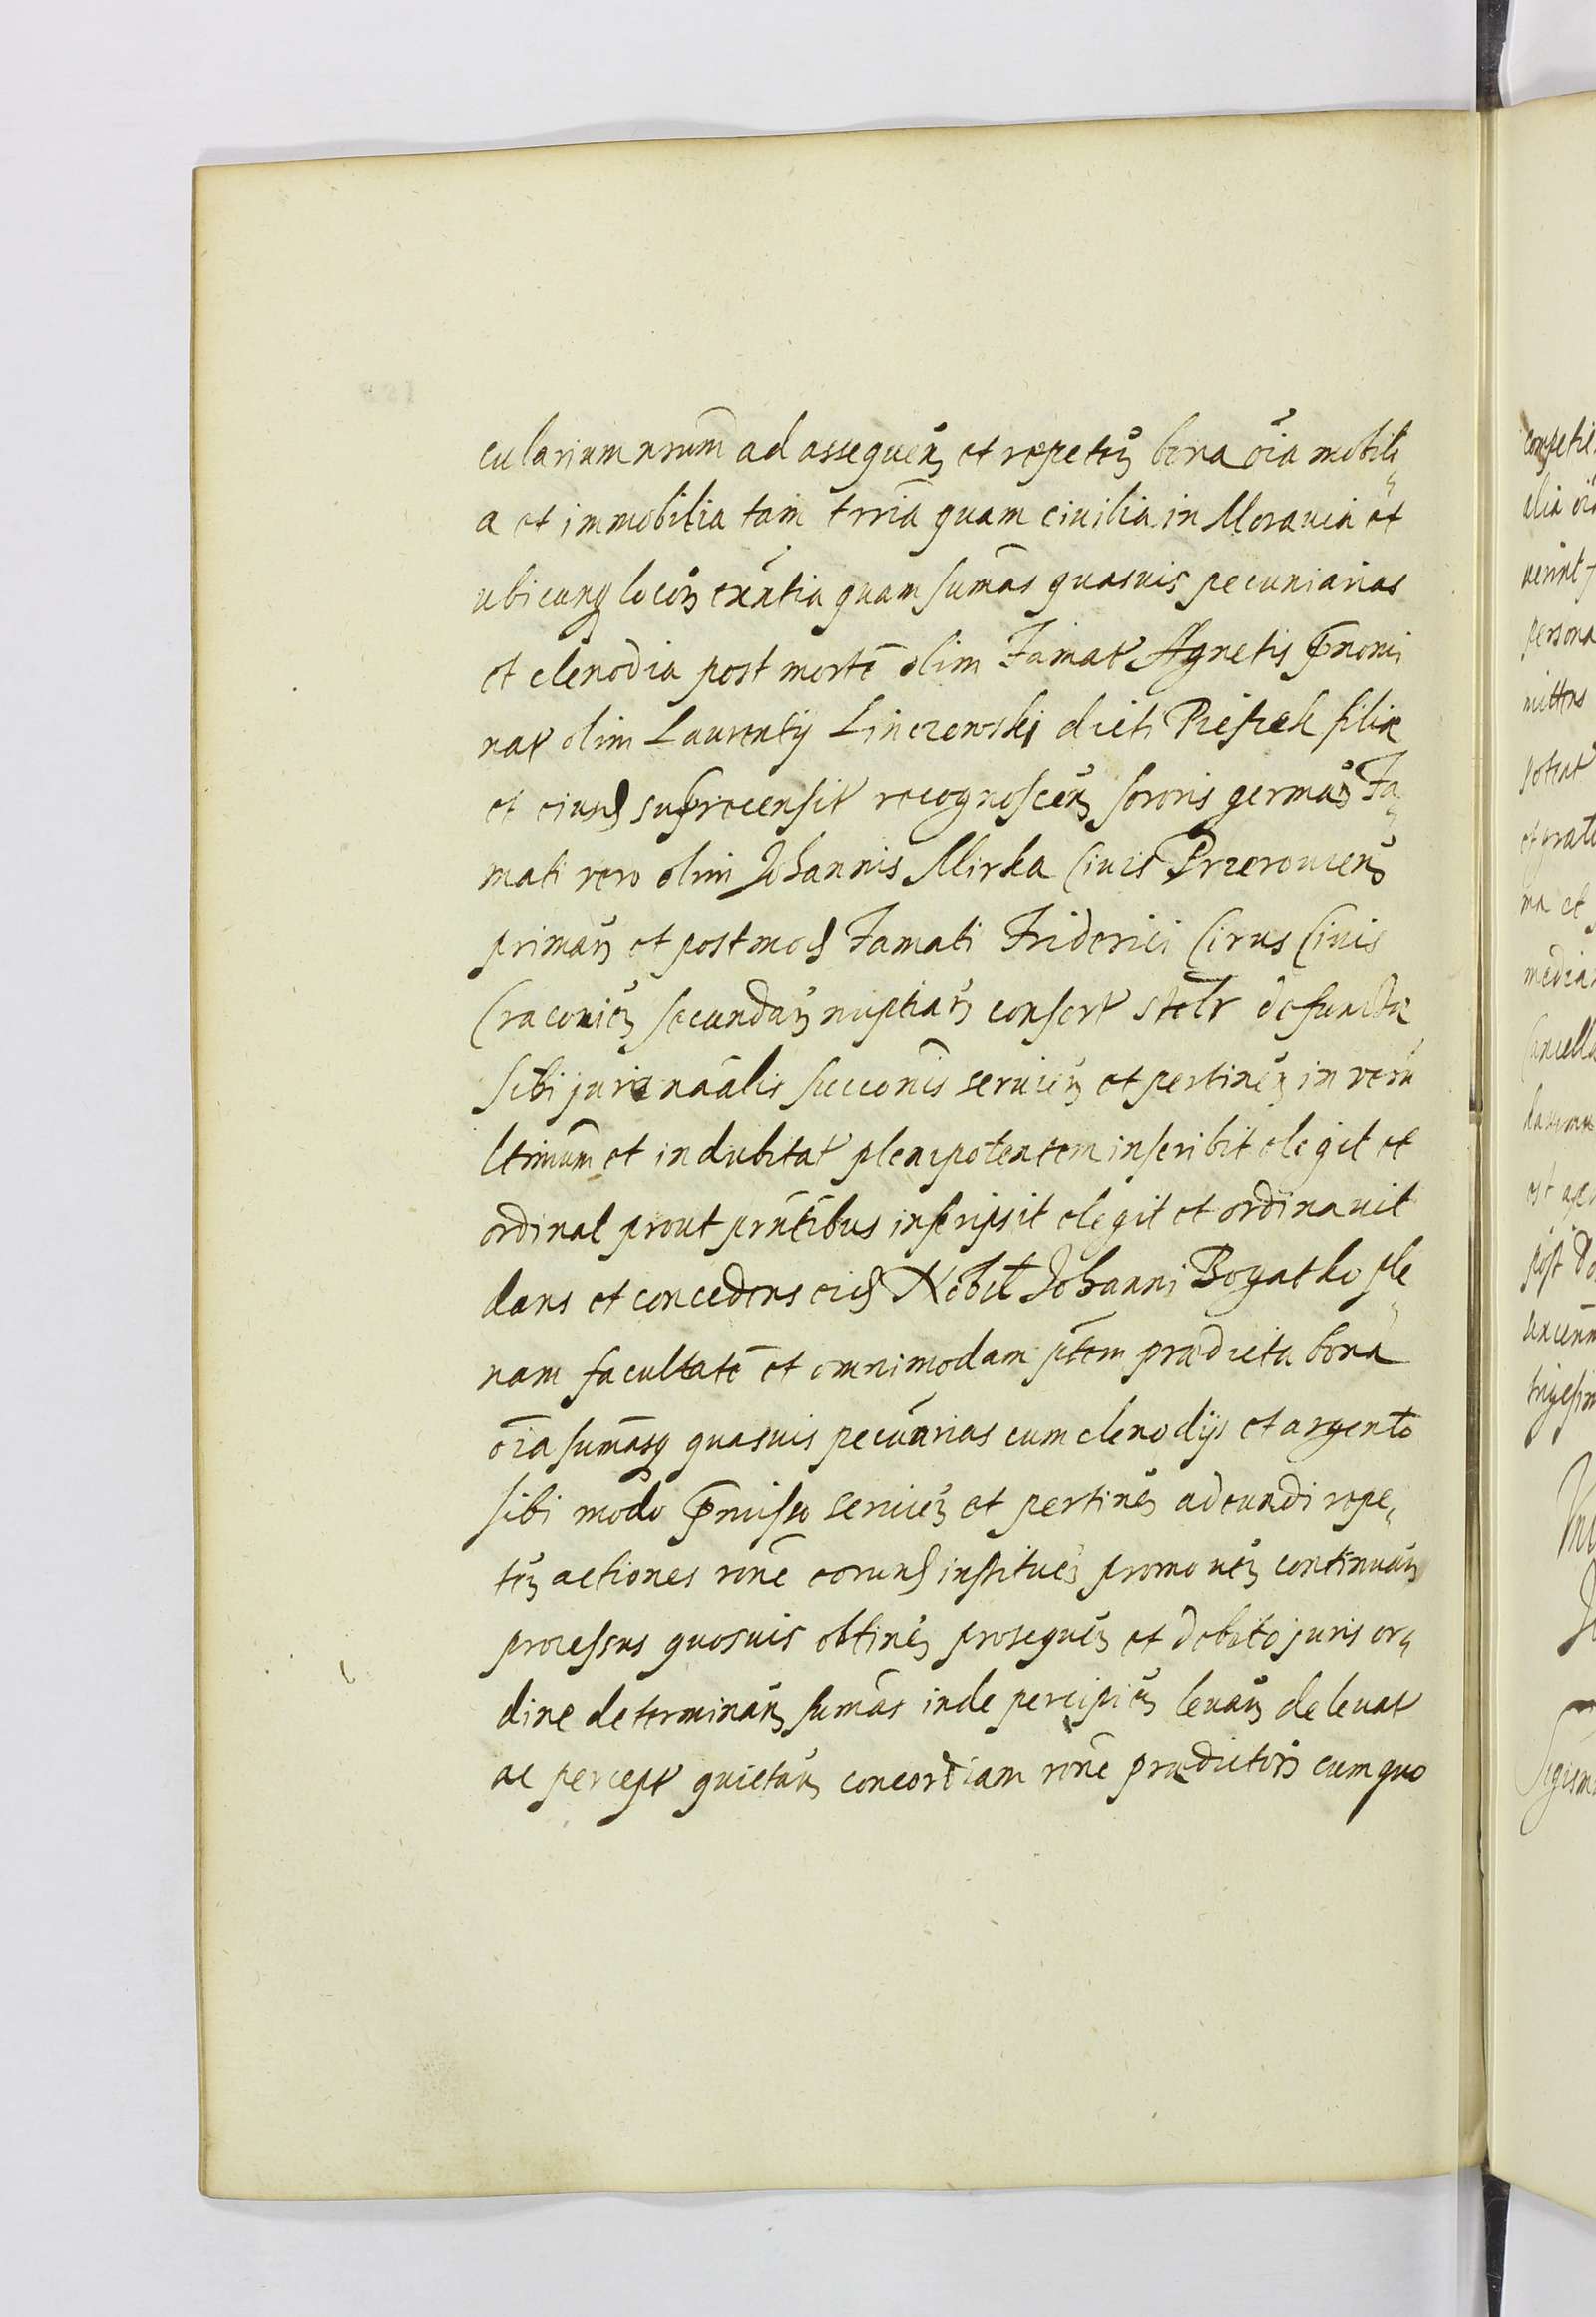 cularium nrum̃ ad assequeñ et repeteñ bona oĩa mobili„
a et immobilia tam trria quam ciuilia in Morauia et
ubicunq locoȝ exñtia quam sumãs quasuis pecuniarias
et clenodia post mortẽ olim Famat Agnetis p̃nomi
nat olim Laurentij Linczewski dicti Pieszek filiæ
et eiusd supprecensit recognosceñ sororis germañ Fa„
mati vero olim Johannis Mirka Ciuis Przerouieñ
primaȝ et postmod Famati Friderici Cirus Ciuis
Cracouieñ secundaȝ nuptiaȝ consort stelr defunctæ
sibi juris nãalis succonĩs seruieñ et pertineñ in verũ
ltimum̃ et indubitat plenipotentem inscribit elegit et
ordinat prout prñtibus inscripsit elegit et ordinauit
dans et concedens eid Nobil Johanni Bogatko ple„
nam facultatẽ et omnimodam ptẽm prædicta bona
oĩa sumãsq quasuis pecunarias cum clenodijs et argento
sibi modo p̃misso seruieñ et pertineñ adeundi repe„
teñ actiones ronẽ eorund institueñ promoueñ continuañ
processus quosuis obtineñ prosequeñ et debito juris or„
dine determinañ sumãs inde percipieñ leuañ de leuat
ac percept quietañ concordiam ronẽ prædictoȝ cum quo
competie
alia oĩa
uerint
persona
mittens
poterat
et grat
ma et
media
Cancella
da
est
post Do
sexcen
trigesim
Sigism